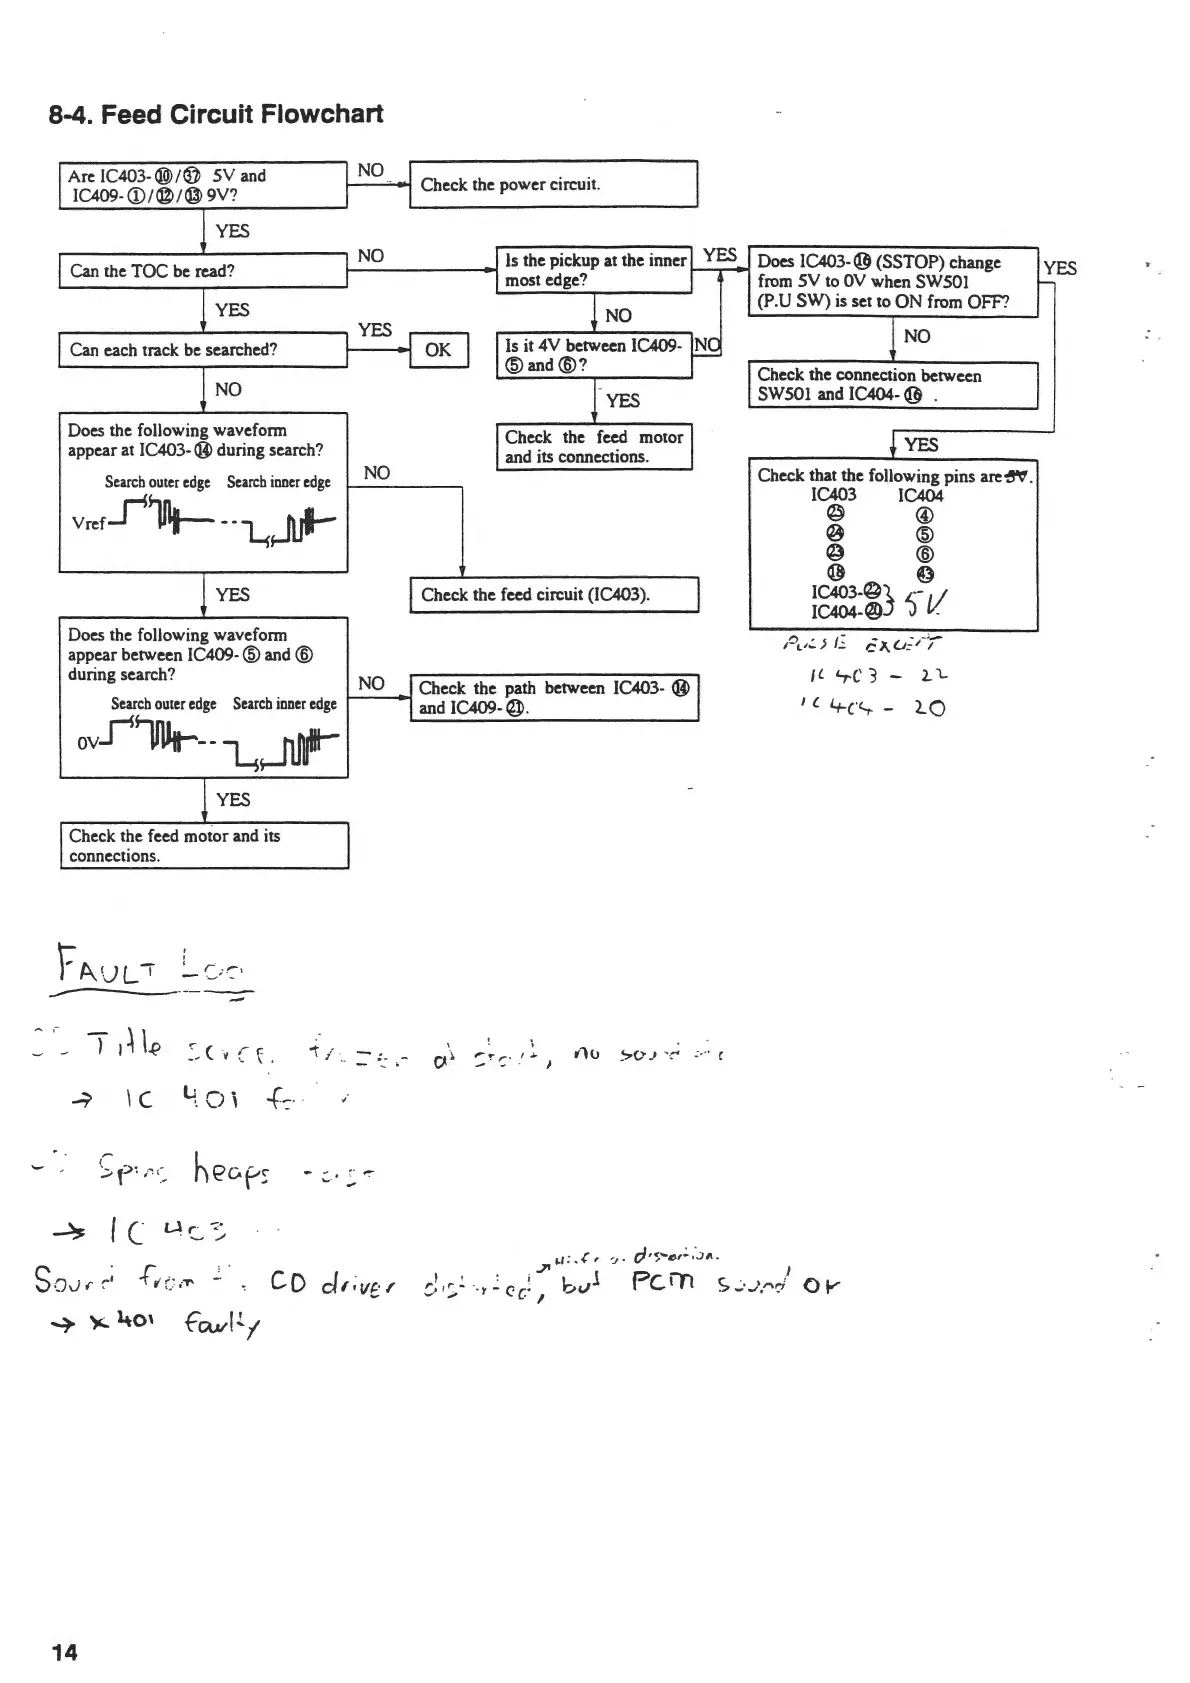 8-4. Feed Circuit Flowchart
Are IC403-⑩/㊲ 5V and
IC409-①/⑫/⑬ 9V?
NO
Check the power circuit.
YES
Can the TOC be read?
NO
Is the pickup at the inner
most edge?
YES
Does IC403-⑯ (SSTOP) change
from 5V to 0V when SW501
(P.U SW) is set to ON from OFF?
YES
YES
NO
NO
Can each track be searched?
YES
OK
Is it 4V between IC409-
⑤ and ⑥?
NO
Check the connection between
SW501 and IC404-⑯ .
NO
YES
YES
Does the following waveform
appear at IC403-⑭ during search?
Search outer edge Search inner edge
Vref
NO
Check the feed motor
and its connections.
Check that the following pins are 5V.
IC403 IC404
㉕ ④
㉔ ⑤
㉓ ⑥
⑱ ㊸
IC403-㉒
IC404-⑳
5V
PULSE EXCEPT
IC 403 - 22
IC 404 - 20
YES
Check the feed circuit (IC403).
Does the following waveform
appear between IC409-⑤ and ⑥
during search?
Search outer edge Search inner edge
0V
NO
Check the path between IC403-⑭
and IC409-㉑.
YES
Check the feed motor and its
connections.
FAULT LOG
Title at start, no
→ IC 401
Spins heaps
→ IC 403
distortion.
Sound from CD driver distorted, but PCM sound OK
→ 401 faulty
14